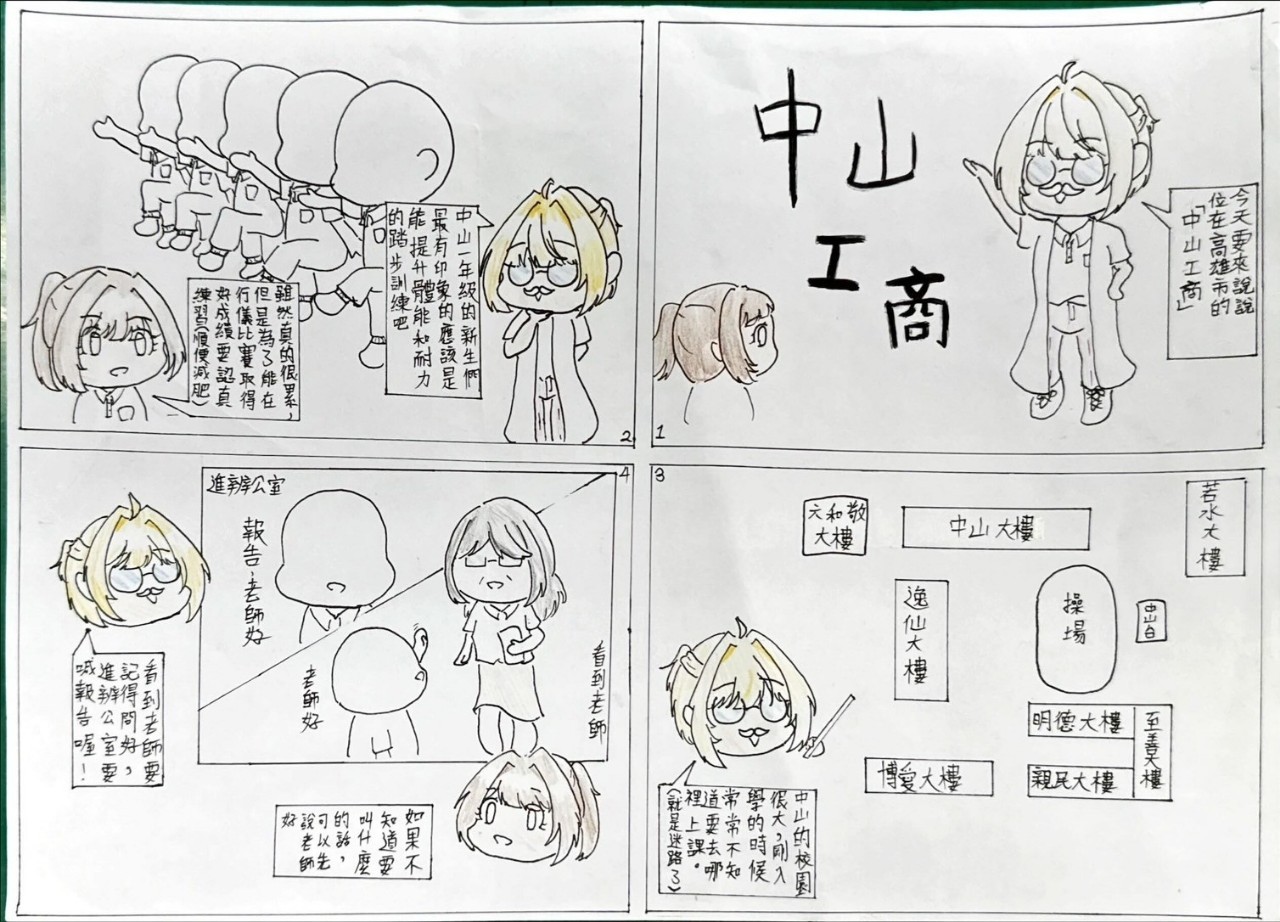 中山
工商
今天要來說說
位在高雄市的
「中山工商」
1
中山一年級的新生們
最有印象的應該是
能提升體能和耐力
的踏步訓練吧
雖然真的很累，
但是為了能在
行儀比賽取得
好成績要認真
練習(順便減肥)
2
3
若水大樓
中山大樓
六和敬
大樓
操場
中山台
逸仙大樓
明德大樓
至善大樓
親民大樓
博愛大樓
中山的校園
很大，剛入
學的時候
常常不知
道要去哪
裡上課。
(就是迷路了)
4
進辦公室
報告，老師好
看到老師
老師好
看到老師要
記得問好，
進辦公室要
喊報告喔！
如果不
知道要
叫什麼
的話，
可以先
說老師
好